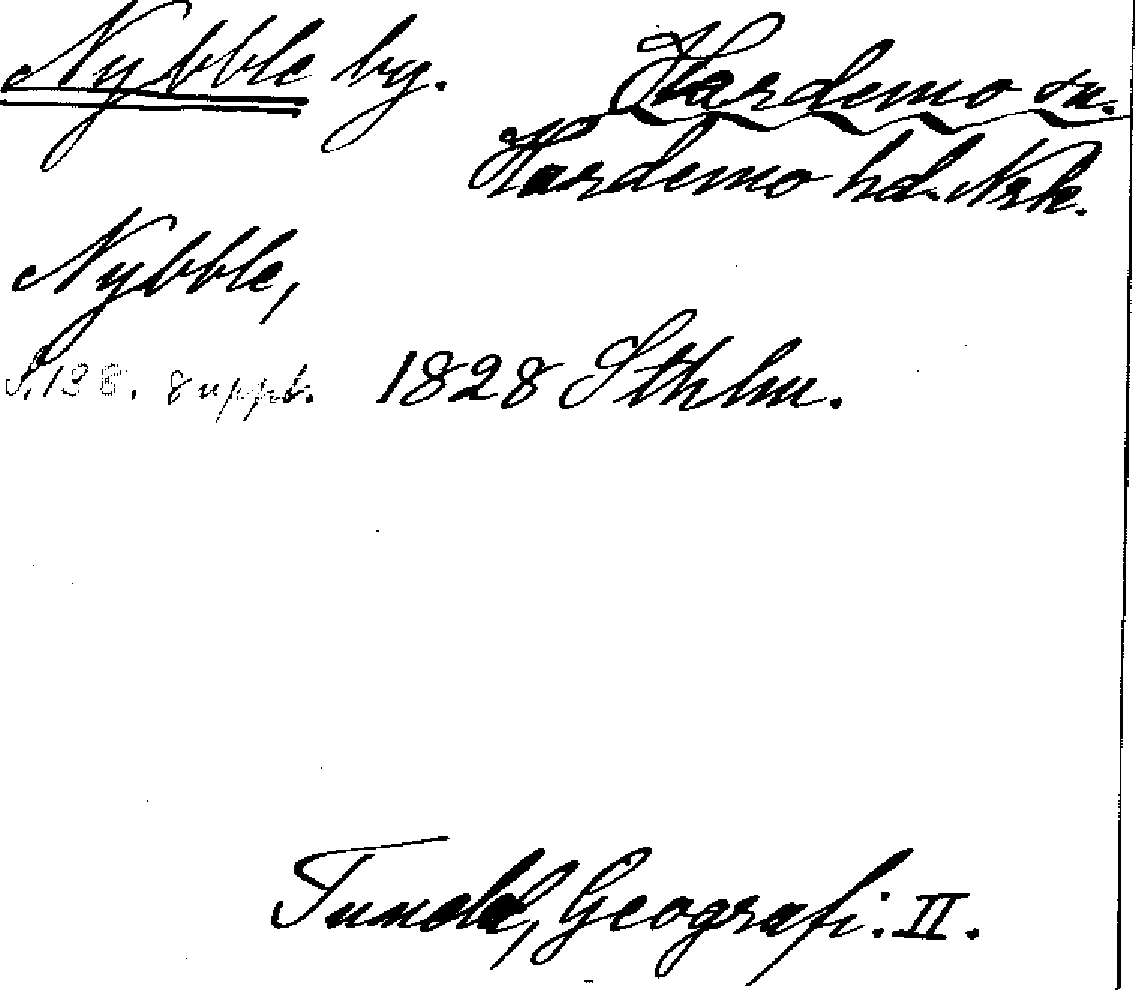 Nybble by. Hardemo sn.
Hardemo hd. Nrk.
Nybble,
S. 138. suppt. 1828 Sthlm.
Tuneld, Geografi. II.